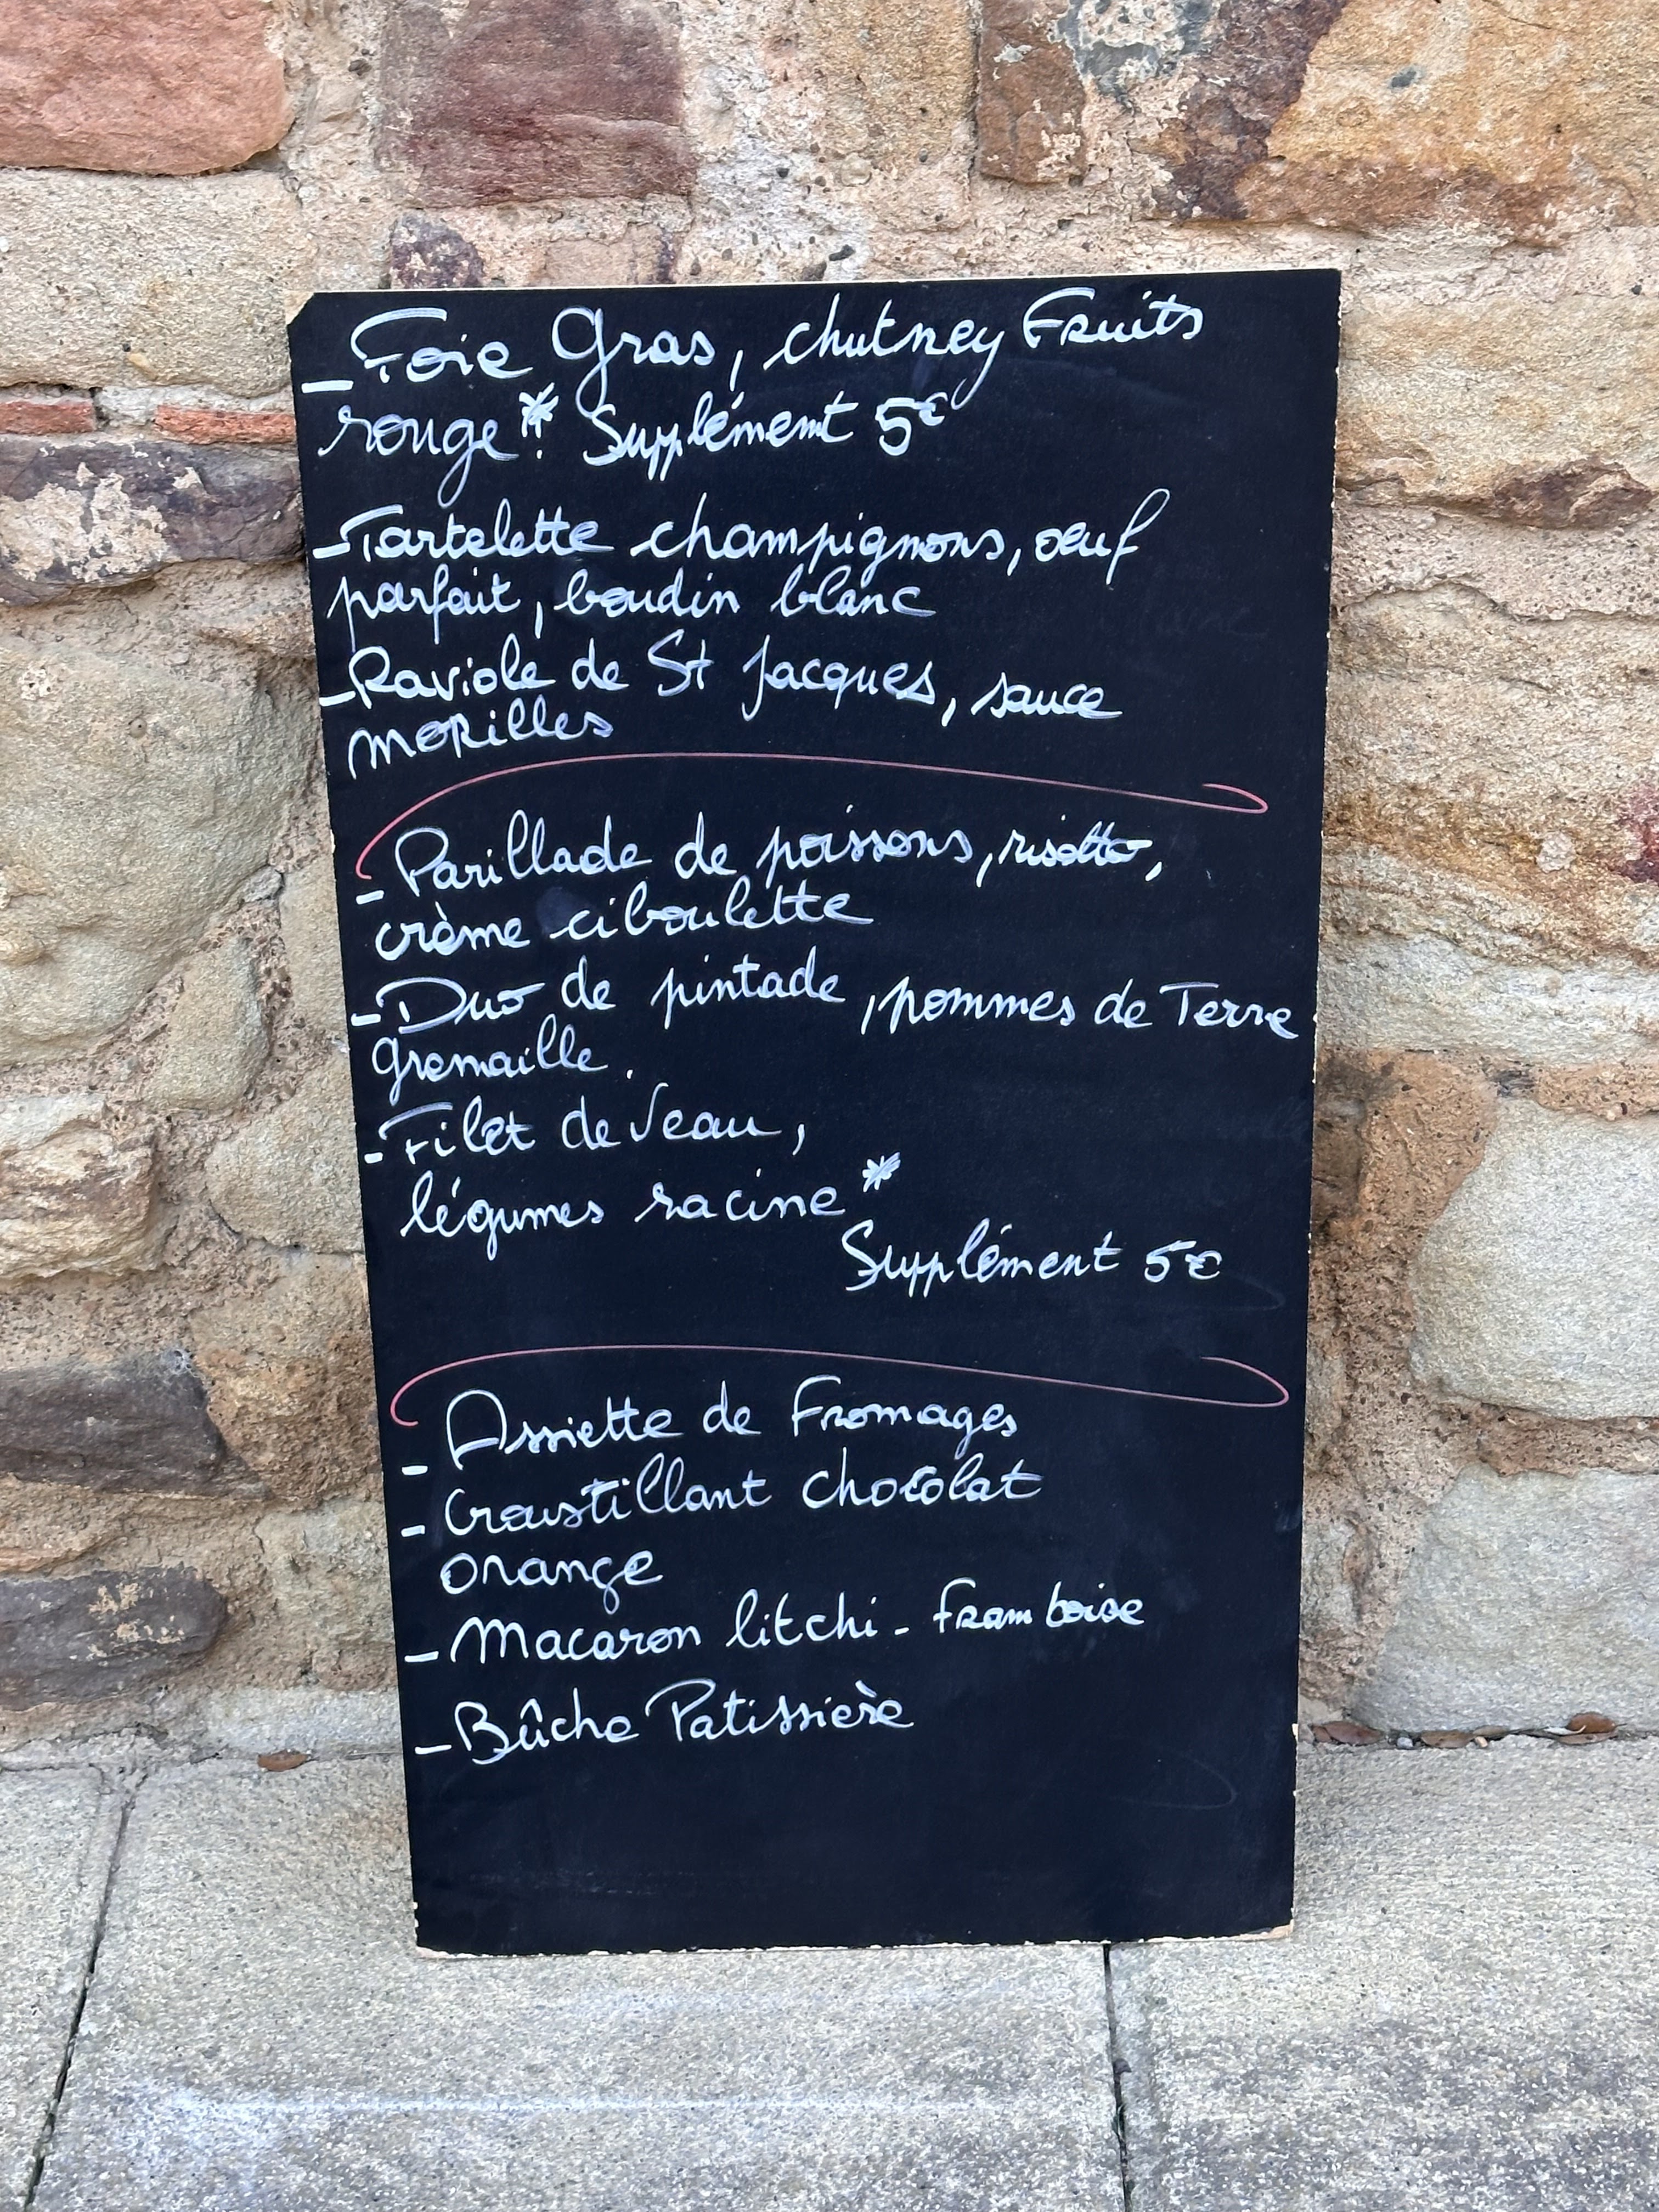 - Foie Gras, chutney Fruits
rouge * Supplément 5€
- Tartelette champignons, oeuf
parfait, boudin blanc
- Raviole de St Jacques, sauce
morilles
- Parillade de poissons, risotto,
crème ciboulette
- Duo de pintade, pommes de Terre
grenaille.
- Filet de Veau,
légumes racine *
Supplément 5€
- Assiette de Fromages
- Croustillant chocolat
orange
- Macaron litchi - framboise
- Bûche Patissière